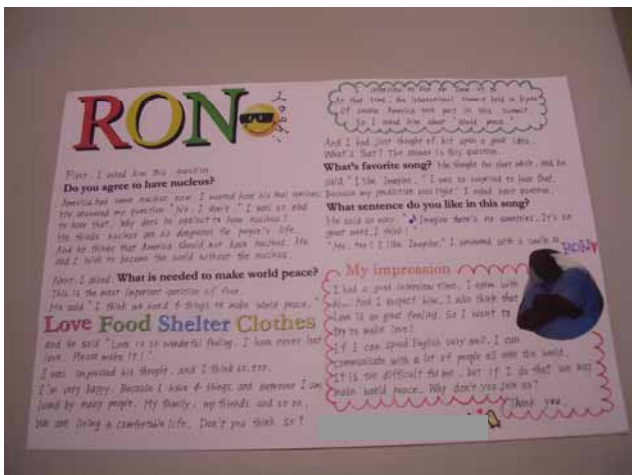 RON
First, I asked him this question.
Do you agree to have nucleus?
America has some nucleus now. I wanted hear his real opinions.
He answered my question "No, I don't." I was so glad
to hear that. Why does he against to have nucleus?
He thinks nucleus are so dangerous to people's life.
And he thinks that America should not have nucleus. He
and I wish to become the world without the nucleus.
Next, I asked What is needed to make world peace?
This is the most important question of five.
He said "I think we need 4 things to make world peace."
Love Food Shelter Clothes
and he said "Love is so wonderful feeling. I have never lost
love. Please make it!"
I was impressed his thought, and I think so, too.
I'm very happy. Because I have 4 things, and someone I am
loved by many people. My family, my friends and so on.
We are living a comfortable life. Don't you think so?
I interview to Ron on June
At that time, the international summit held in
Of course America took part in this summit.
So I asked him about "World peace."
And I had just thought of his upon a good idea.
What's that? The answer is this question.
What's favorite song? He thought for short while, and he
said "I like Imagine." I was so surprised to hear that,
because my prediction was right! I asked next question.
What sentence do you like in this song?
He said so easy. "♪ Imagine there's no countries. It's so
great word, I think!"
"Me, too! I like Imagine." I answered with a smile
RON
My impression
I had a good interview time. I agree with
him. And I respect him. I also think that
Love is so great feeling. So I want to
try to make love!
If I can speak English very well, I can
communicate with a lot of people all over the world.
It is too difficult for me, but if I do that we may
make world peace. Why don't you join us?
Thank you